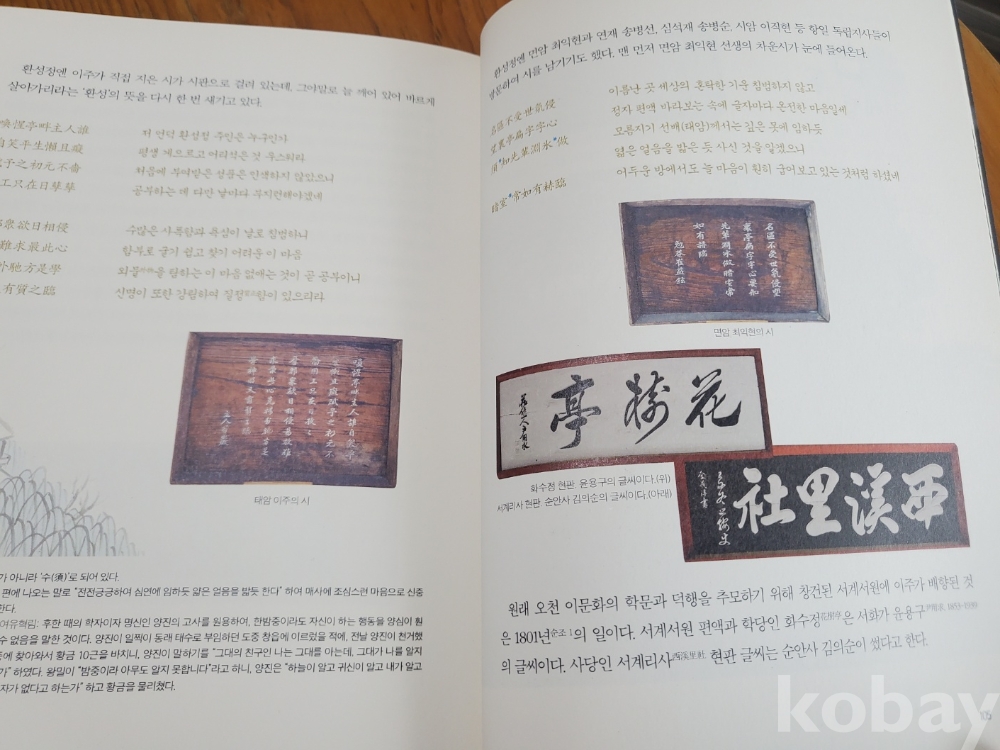 환성정엔 이주가 직접 지은 시가 시판으로 걸려 있는데, 그야말로 늘 깨어 있어 바르게
살아가리라는 '환성'의 뜻을 다시 한 번 새기고 있다.
喚惺亭畔主人誰
저 언덕 환성정 주인은 누구인가
自笑平生懶且癡
평생 게으르고 어리석은 것 우스워라
予之初元不嗇
처음에 부여받은 성품은 인색하지 않았으니
工只在日孳孳
공부하는 데 다만 날마다 부지런해야겠네
衆欲日相侵
수많은 사특함과 욕심이 날로 침범하니
難求最此心
함부로 굴기 쉽고 찾기 어려운 이 마음
外馳方是學
외물로 달리는 이 마음 없애는 것이 곧 공부이니
有質之臨
신명이 또한 강림하여 질정함이 있으리라
태암 이주의 시
가 아니라 '수(須)'로 되어 있다.
편에 나오는 말로 "전전긍긍하여 심연에 임하듯 얇은 얼음을 밟듯 한다" 하여 매사에 조심스런 마음으로 신중
한다.
여유혁림: 후한 때의 학자이자 명신인 양진의 고사를 원용하여, 한밤중이라도 자신이 하는 행동을 양심이 훤
수 없음을 말한 것이다. 양진이 일찍이 동래 태수로 부임하던 도중 창읍에 이르렀을 적에, 전날 양진이 천거했
중에 찾아와서 황금 10근을 바치니, 양진이 말하기를 "그대의 친구인 나는 그대를 아는데, 그대가 나를 알지
가" 하였다. 왕밀이 "밤중이라 아무도 알지 못합니다"라고 하니, 양진은 "하늘이 알고 귀신이 알고 내가 알고
자가 없다고 하는가" 하고 황금을 물리쳤다.
환성정엔 면암 최익현과 연재 송병선, 심석재 송병순, 시암 이직현 등 항일 독립지사들이
방문하여 시를 남기기도 했다. 맨 먼저 면암 최익현 선생의 차운시가 눈에 들어온다.
名區不受世氛侵
이름난 곳 세상의 혼탁한 기운 침범하지 않고
望裏亭扁字字心
정자 편액 바라보는 속에 글자마다 온전한 마음일세
須*如先輩淵氷*儆
모름지기 선배(태암)께서는 깊은 못에 임하듯
엷은 얼음을 밟은 듯 사신 것을 알겠으니
暗室*常如有赫臨
어두운 방에서도 늘 마음이 훤히 굽어보고 있는 것처럼 하셨네
면암 최익현의 시
花樹亭
화수정 현판. 윤용구의 글씨이다.(위)
서계리사 현판. 순안사 김의순의 글씨이다.(아래)
西溪里社
원래 오천 이문화의 학문과 덕행을 추모하기 위해 창건된 서계서원에 이주가 배향된 것
은 1801년순조 1의 일이다. 서계서원 편액과 학당인 화수정花樹亭은 서화가 윤용구尹用求, 1853~1939
의 글씨이다. 사당인 서계리사西溪里社 현판 글씨는 순안사 김의순이 썼다고 한다.
kobay